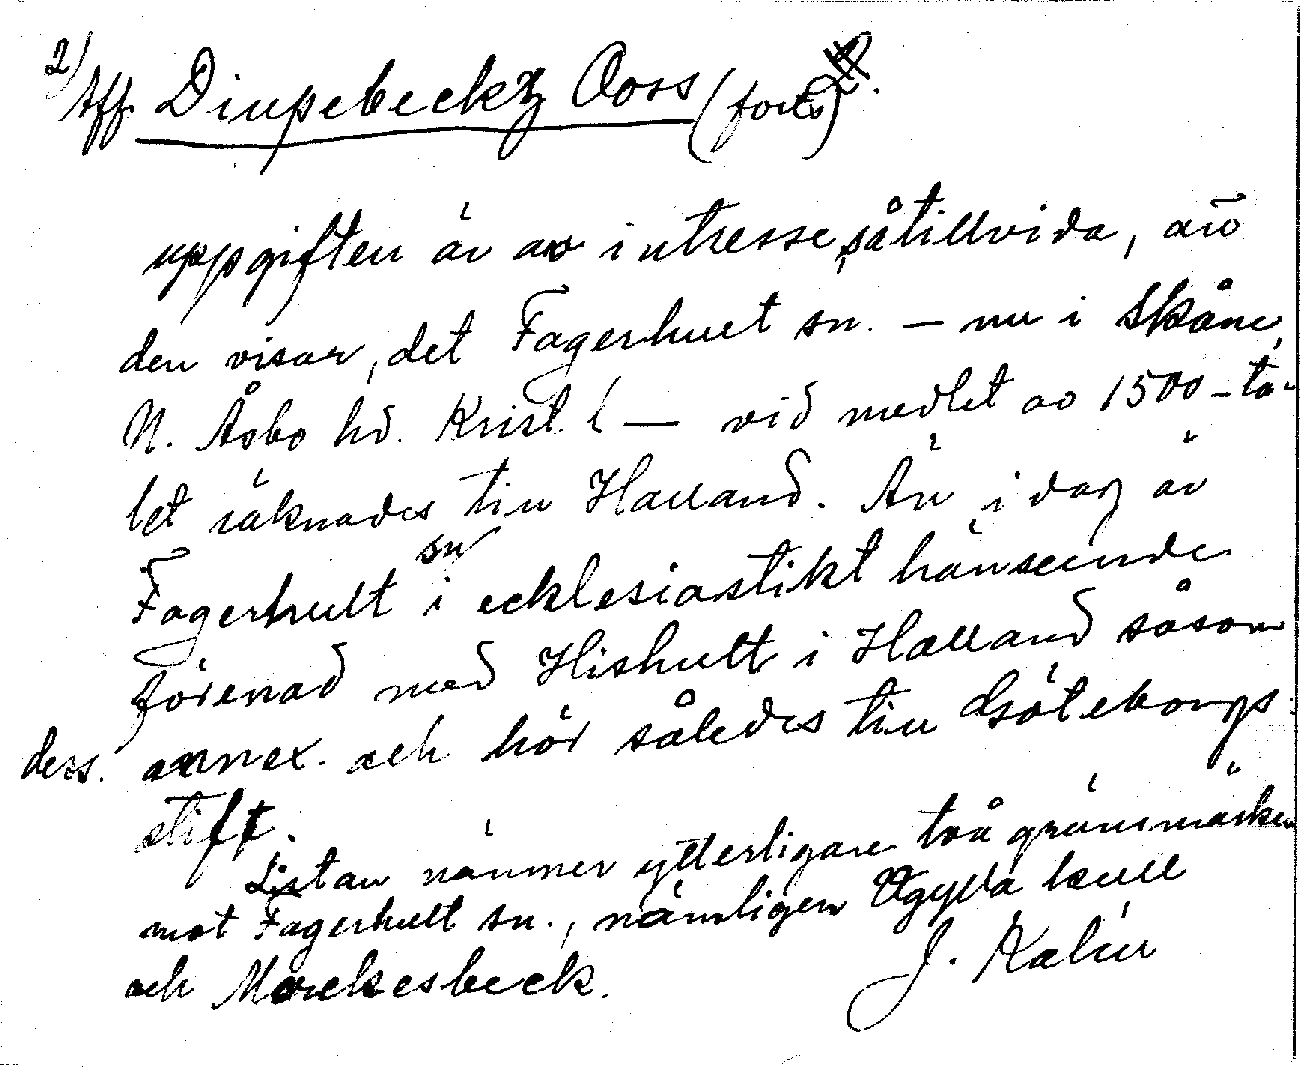 2/ Aff. Diupebeckz Ooss (forts)
uppgiften är av intresse såtillvida, att
den visar, det Fagerhult sn. – nu i Skåne,
N. Åsbo hd. Krist. l – vid medlet av 1500-ta-
let räknades till Halland. Än i dag är
Fagerhult sn i ecklesiastikt hänseende
förenad med Hishult i Halland såsom
dess. annex. och hör således till Göteborgs
stift.
Listan nämner ytterligare två gränsmärken
mot Fagerhult sn., nämligen kull
och Morckesbeck. J. Kalén